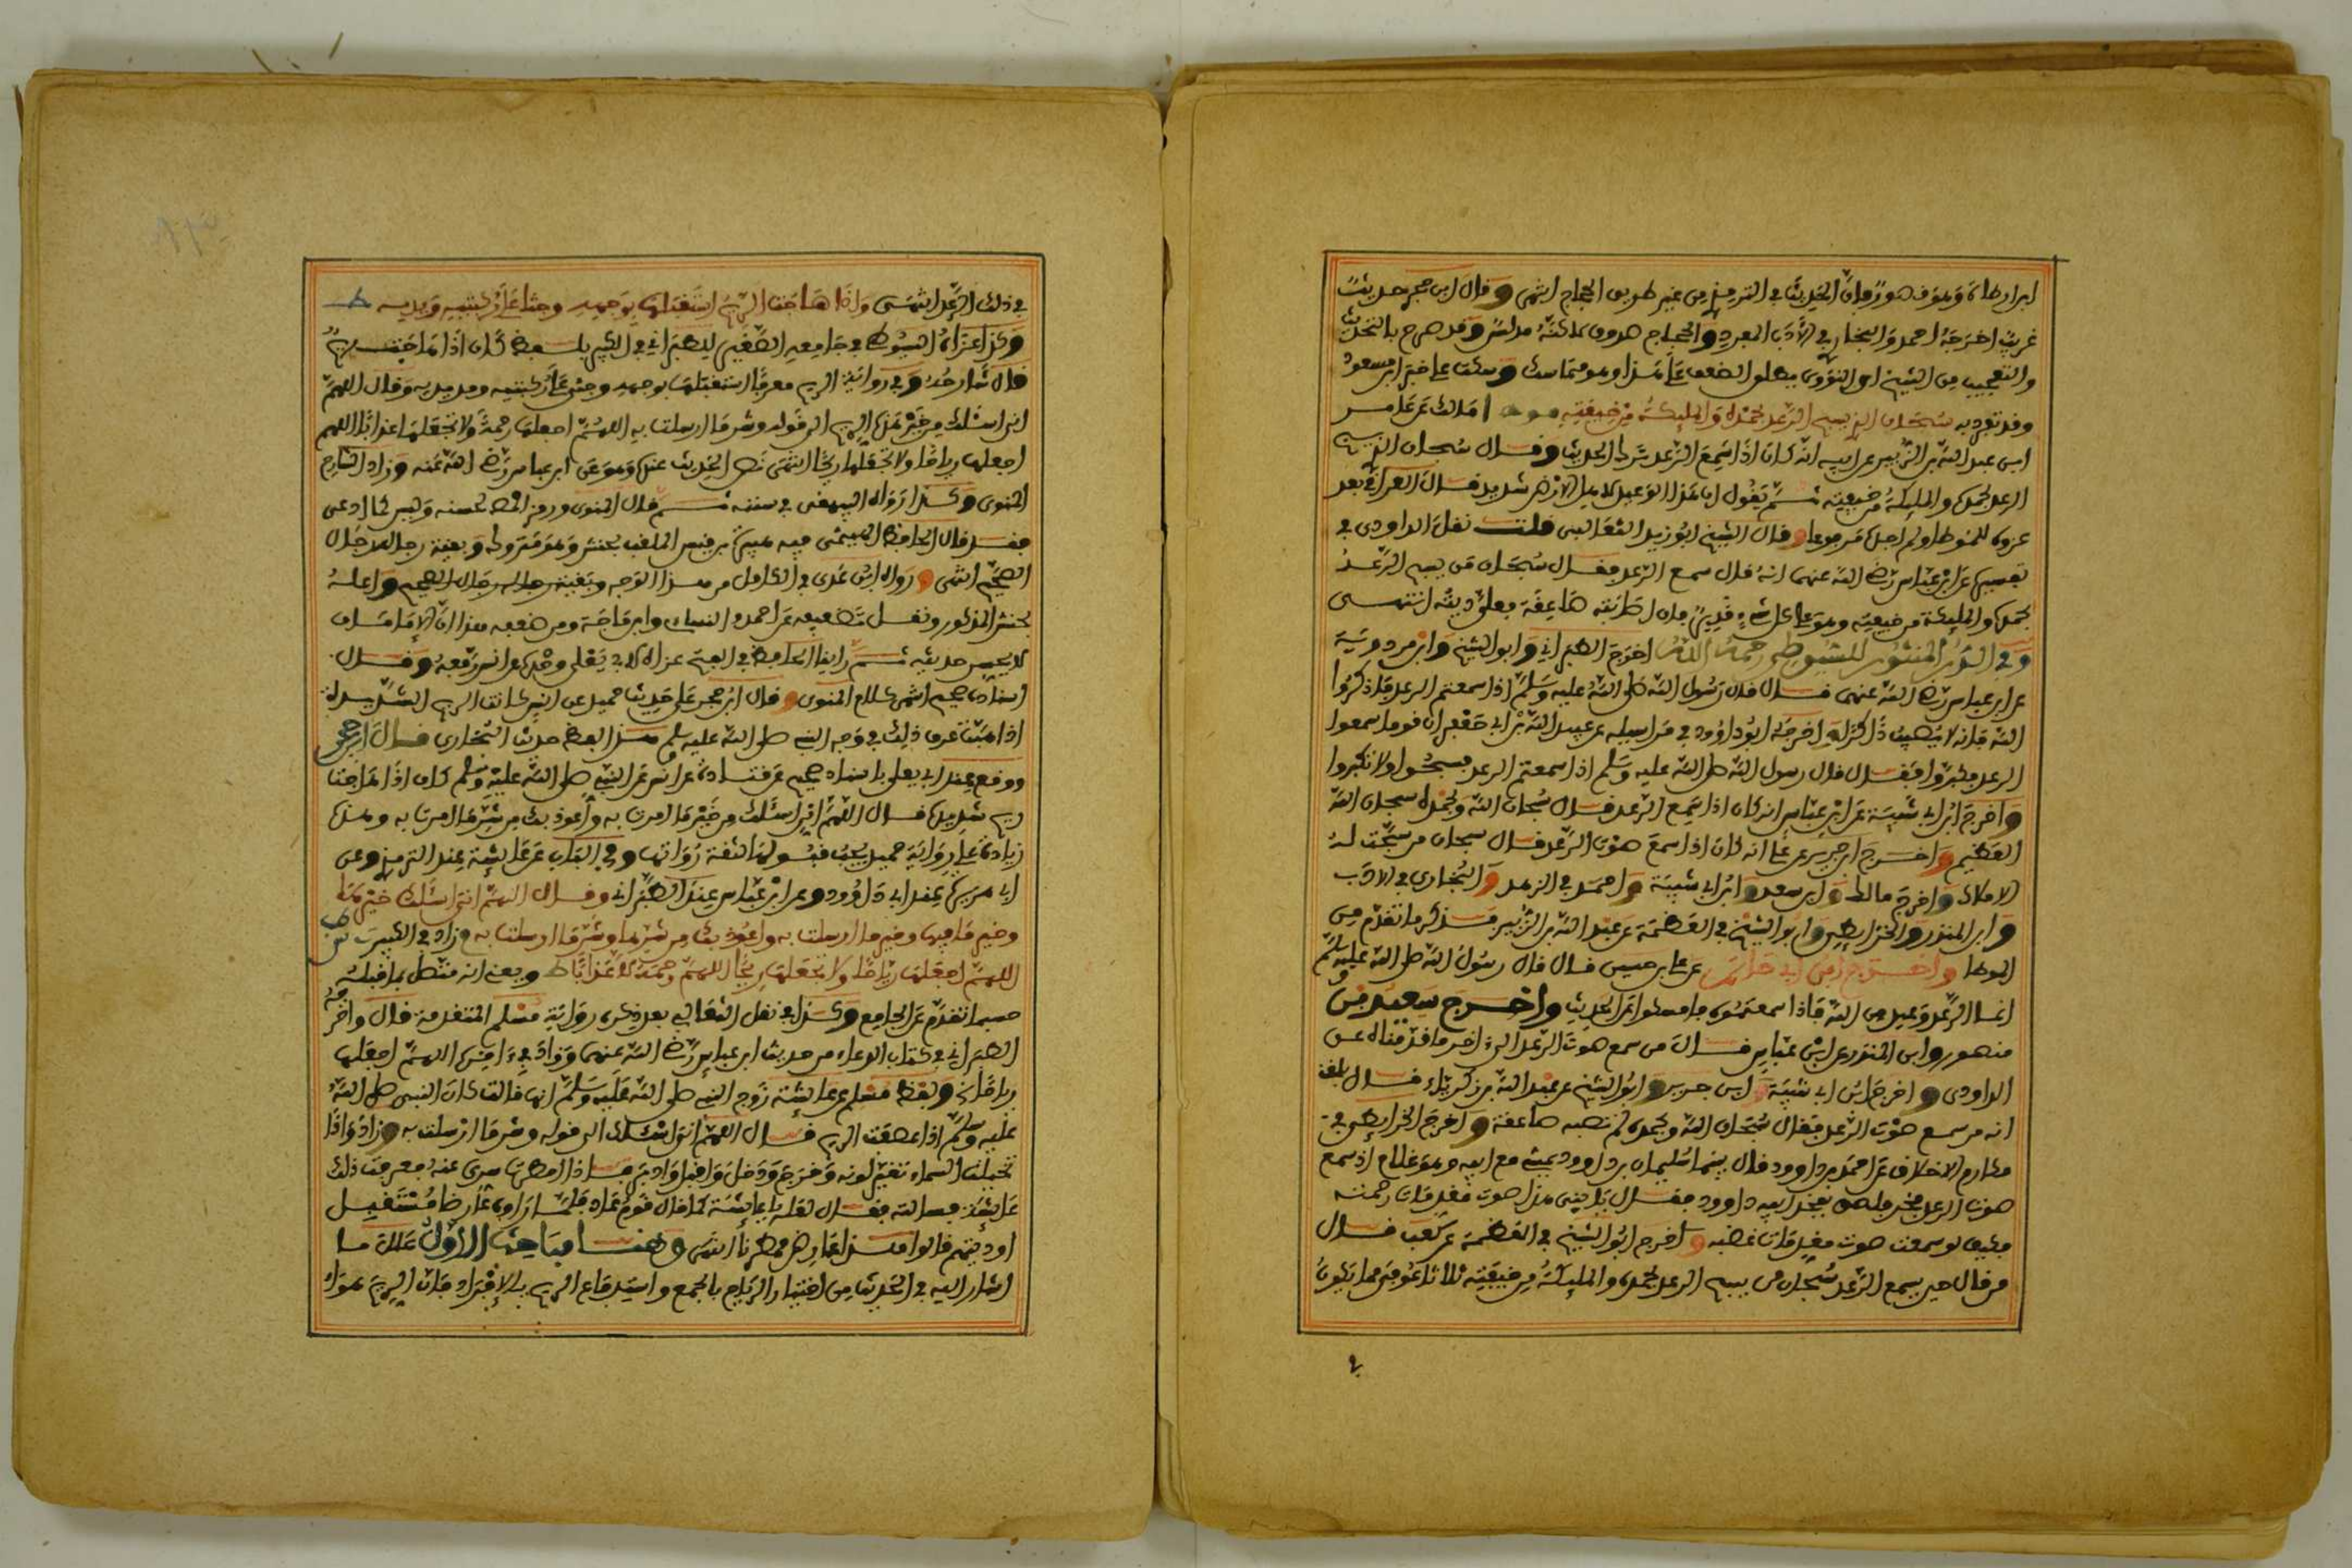 ابن ارطاة وهو في هو زوان الحديث في الترمذي من غير طريق الحجاج انتهى وقال ابن حجر حديث
غريب اخرجه احمد والبخاري في الأدب المفرد والحجاج صدوق لاكنه مدلس وقد صرح بالتحديث
والتعجيب من الشيخ اي النووي يطلق الضعف على هذا وهو متماسك وسكت على خبر ابن مسعود
وقد تفرد به سبحان الذي يسبح الرعد بحمده والمليكة من خيفته امالك عن عامر
ابن عبد الله بن الزبير عن ابيه انه كان اذا سمع الرعد ترك الحديث وقال سبحان الذي يسبح
الرعد بحمده والمليكة من خيفته ثم يقول ان هذا الوعيد لاهل الارض شديد قال العراقي بعد
عزوه للموطا ولم اجده مرفوعا وقال الشيخ ابو زيد الثعالبي قلت نقل الداودي في
تفسيره عن ابن عباس رضي الله عنهما انه قال من سمع الرعد فقال سبحان من يسبح الرعد
بحمده والمليكة من خيفته وهو على كل شيء قدير فان اصابته صاعقة فعلي ديته انتهى
وفي الدر المنثور للسيوطي رحمه الله اخرج الطبراني وابو الشيخ وابن مردويه
عن ابن عباس رضي الله عنهما قال قال رسول الله صلى الله عليه وسلم اذا سمعتم الرعد فاذكروا
الله فانه لا يصيب ذاكرا واخرج ابو داوود في مراسيله عن عبيد الله بن ابي جعفر ان قوما سمعوا
الرعد فكبروا فقال قال رسول الله صلى الله عليه وسلم اذا سمعتم الرعد فسبحوا ولا تكبروا
واخرج ابن ابي شيبة عن ابن عباس انه كان اذا سمع الرعد قال سبحان الله وبحمده سبحان الله
العظيم واخرج ابن جرير عن علي انه كان اذا سمع صوت الرعد قال سبحان من سبحت له
الاملاك واخرج مالك وابن سعد وابن ابي شيبة واحمد في الزهد والبخاري في الادب
وابن المنذر والخرايطي وابو الشيخ في العظمة عن عبد الله بن الزبير فذكر ما تقدم من
الموطا واخرج ابن ابي حاتم عن علي بن حسين قال قال رسول الله صلى الله عليه وسلم
انما الرعد وعيد من الله فاذا سمعتموه فامسكوا عن الحديث واخرج سعيد بن
منصور وابن المنذر عن ابن عباس قال من سمع صوت الرعد الى اخر ما قدمناه عن
الداودي واخرج ابن ابي شيبة وابن جرير وابو الشيخ عن عبد الله بن زكرياء قال بلغنا
انه من سمع صوت الرعد فقال سبحان الله وبحمده لم تصبه صاعقة واخرج الخرايطي في
مكارم الاخلاق عن احمد بن داوود قال بينما سليمان بن داوود يمشي مع ابيه وهو غلام اذ سمع
صوت الرعد فخر فلصق بفخذ ابيه داوود فقال يا بني هذا صوت مقدمات رحمته
فكيف لو سمعت صوت مقدمات غضبه واخرج ابو الشيخ في العظمة عن كعب قال
من قال حين يسمع الرعد سبحان من يسبح الرعد بحمده والمليكة من خيفته ثلاثا عوفي مما يكون
في ذلك الرعد انتهى واذا هاجت الريح استقبلها بوجهه وجثا على ركبتيه ويديه ط
وكذا عزاه السيوطي في جامعه الصغير للطبراني في الكبير بلفظ كان اذا هاجت ريح
قال شارحه وفي رواية الريح معرفا استقبلها بوجهه وجثى على ركبتيه ومد يديه وقال اللهم
اني اسئلك من خير هذه الريح الى قوله وشر ما ارسلت به اللهم اجعلها رحمة ولا تجعلها عذابا اللهم
اجعلها رياحا ولا تجعلها ريحا انتهى نص الحديث عنده وهو عن ابن عباس رضي الله عنه وزاد الشارح
المنوي وكذا رواه البيهقي في سننه ثم قال المنوي ورمز المص لحسنه وليس كما ادعى
فقد قال الحافظ الهيثمي فيه حسين بن قيس الملقب بحنش وهو متروك وبقية رجاله رجال
الصحيح انتهى ورواه ابن عدي في الكامل من هذا الوجه وبقية رجاله رجال الصحيح واعله
بحنش المذكور ونقل تضعيفه عن احمد والنسائي وابن ماجة ومن ضعفه هذا ان الامام
لا يحسن حديثه ثم رايت الحافظ في الفتح عزاه لابي يعلى وحده عن انس رفعه وقال
اسناده صحيح انتهى كلام المنوي وقال ابن حجر على حديث حميد عن انس كانت الريح الشديدة
اذا هبت عرف ذلك في وجه النبي صلى الله عليه وسلم هذا لفظ حديث البخاري قال ابن حجر
ووقع عند ابي يعلى باسناد صحيح عن قتادة عن انس عن النبي صلى الله عليه وسلم كان اذا هاجت
ريح شديدة قال اللهم اني اسئلك من خير ما امرت به واعوذ بك من شر ما امرت به وهذه
زيادة على رواية حميد يجب قبولها لثقة رواتها وفي الباب عن عايشة عند الترمذي وعن
ابي هريرة عند ابي داوود وعن ابن عباس عند الطبراني وقال اللهم اني اسئلك خيرها
وخير ما فيها وخير ما ارسلت به واعوذ بك من شرها وشر ما ارسلت به م زاد في الكبير
اللهم اجعلها رياحا ولا تجعلها ريحا اللهم رحمة لا عذابا ط ويعني انه متصل بما قبله
حسبما تقدم عن الجامع وكذا في نقل الثعالبي بعد ذكره رواية مسلم المتقدمة قال واخرجه
الطبراني في كتاب الدعاء من حديث ابن عباس رضي الله عنهما وزاد في ءاخره اللهم اجعلها
رياحا الخ ولفظ مسلم عن عايشة زوج النبي صلى الله عليه وسلم انها قالت كان النبي صلى الله
عليه وسلم اذا عصفت الريح قال اللهم اني اسئلك الى قوله وشر ما ارسلت به وزاد واذا
تخيلت السماء تغير لونه وخرج ودخل واقبل وادبر فاذا امطرت سري عنه فعرفت ذلك
عايشة فسالته فقال لعله يا عايشة كما قال قوم عاد فلما راوه عارضا مستقبل
اوديتهم قالوا هذا عارض ممطرنا انتهى وهنا مباحث الاول علل ما
اشار اليه في الحديث من اختيار الرياح بالجمع واستدفاع الريح بالافراد فان الريح هواء